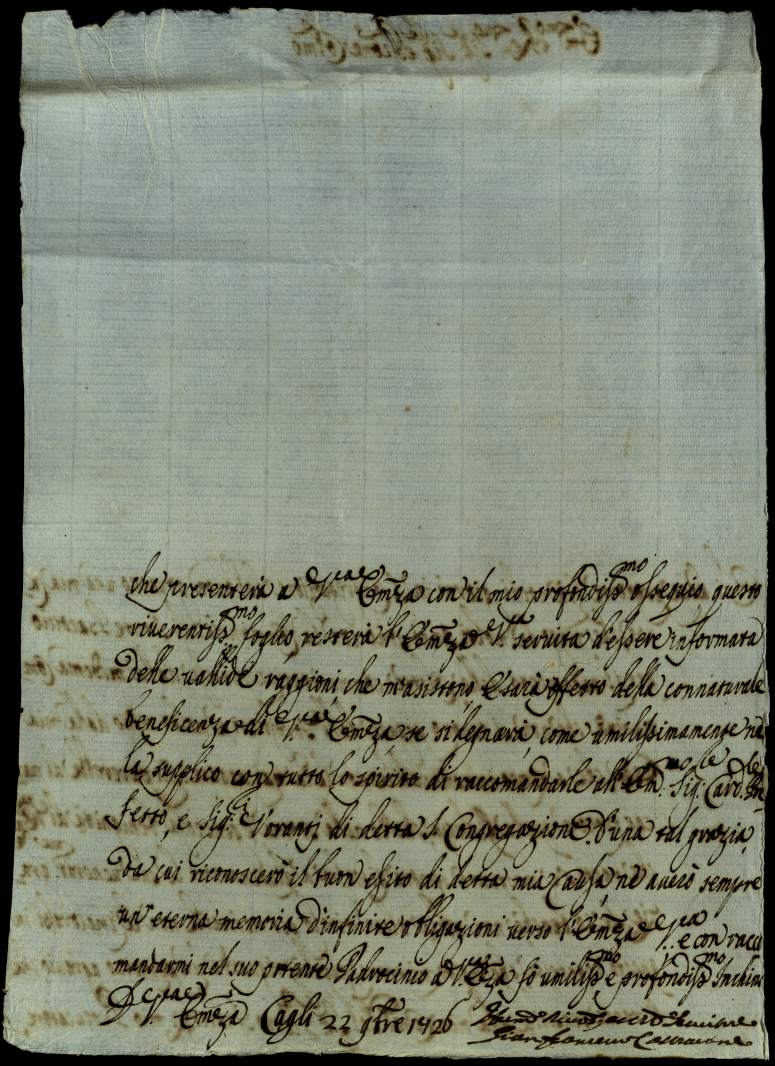 che presenterà a V.ra Em̃za con il mio profondiss.mo ossequio questo
riverentiss.mo foglio, resterà l'Em̃za V.ra servita d'essere informata
delle vallide raggioni, che m'asistono, e sarà effetto della connaturale
beneficenza di V.ra Em̃za, se si degnarà, come umilissimamente ne
la supplico con tutto lo spirito di raccomandarle all' Em.mo Sig.re Card.le Pre
fetto, e Sig.ri Votanti di detta S. Congregazione. D'una tal grazia,
da cui riconoscerò il buon esito di detta mia Causa, ne averò sempre
un' eterna memoria d'infinite obligazioni verso l'Em̃za V.ra e con racco
mandarmi nel suo potente Padrocinio a V.ra Em̃za fò umiliss.mo e profondiss.mo Inchino
D. V.ra Em̃za Cagli 22 9bre 1726
Gian Francesco